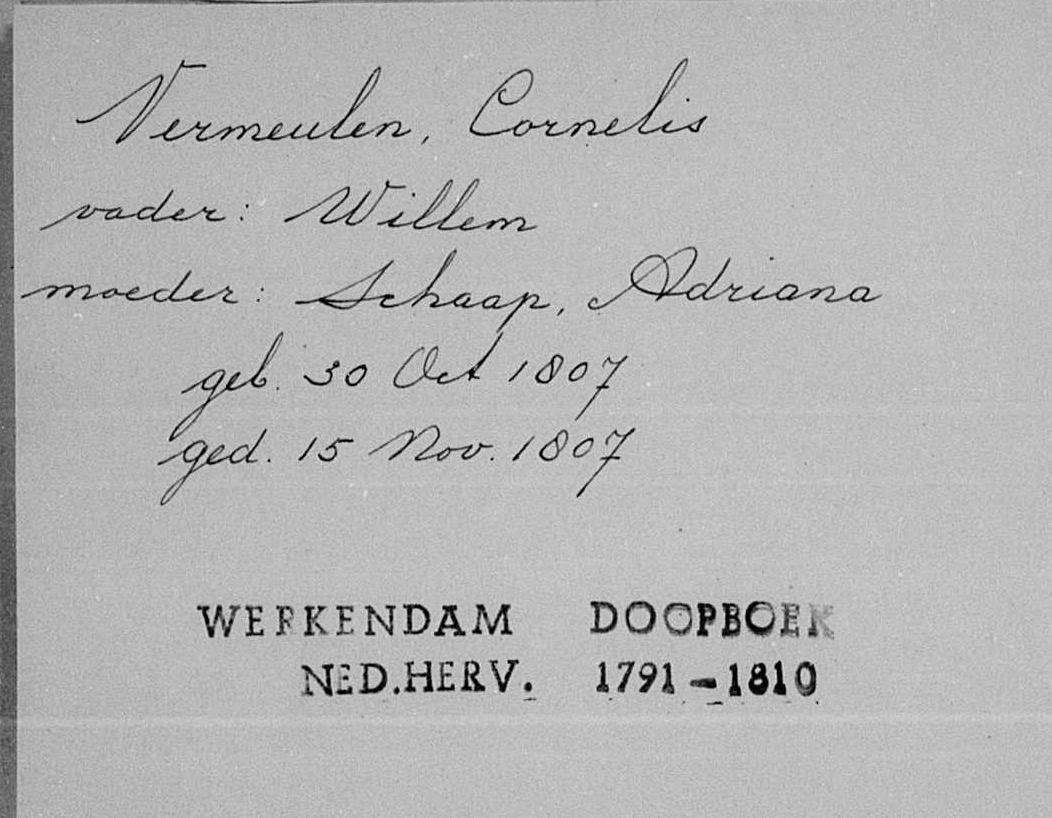 Vermeulen, Cornelis
vader: Willem
moeder: Schaap, Adriana
geb. 30 Oct 1807
ged. 15 Nov. 1807
WERKENDAM DOOPBOEK
NED.HERV. 1791-1810